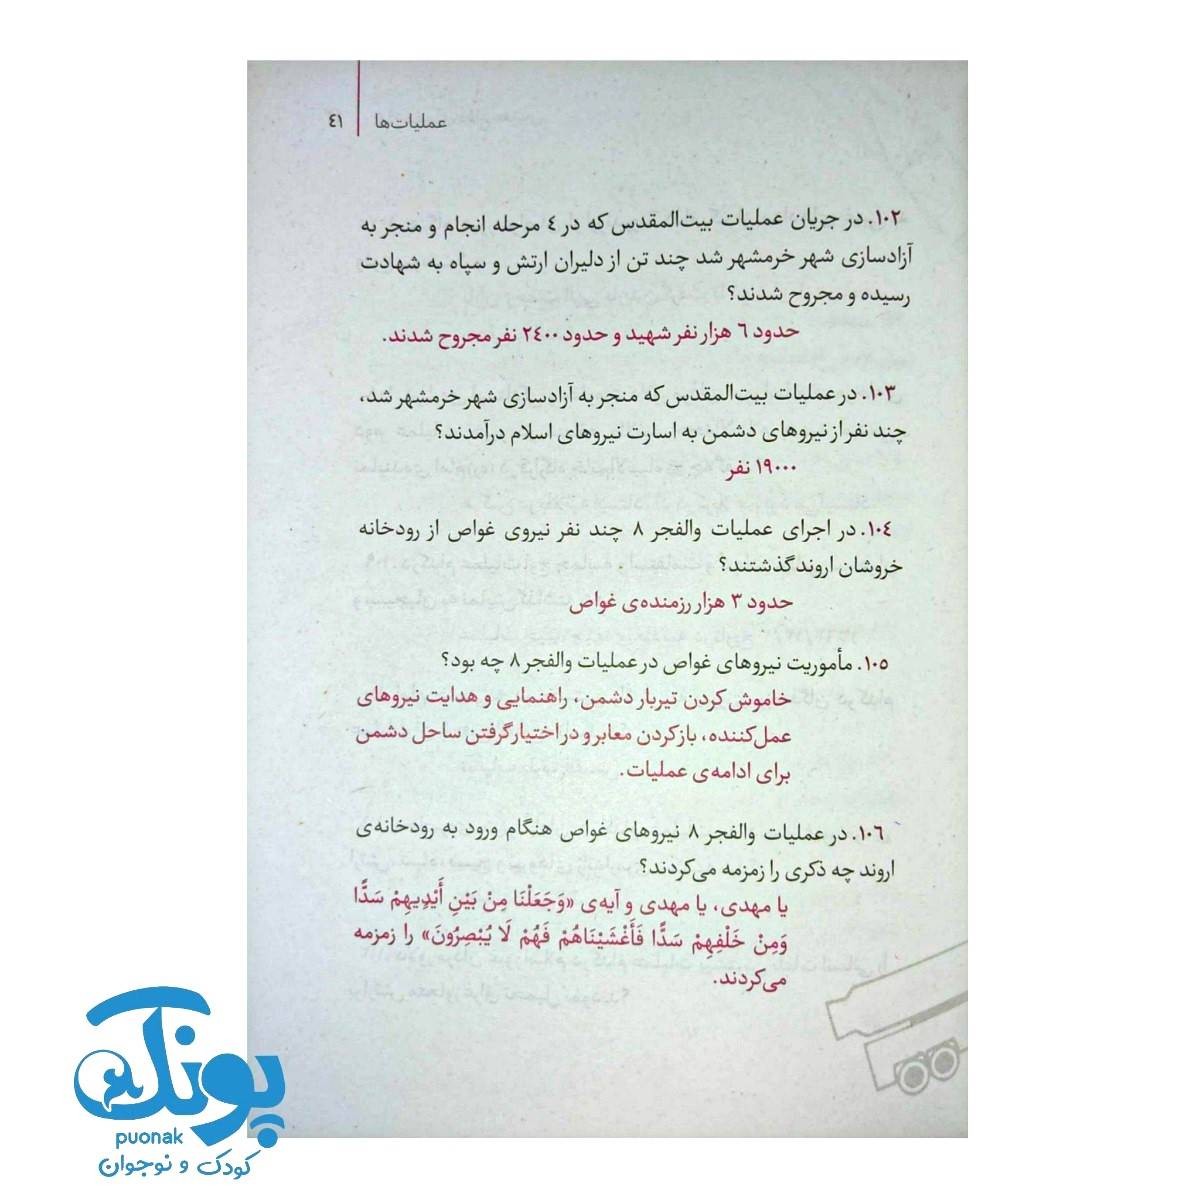 عملیات‌ها ٤١
۱۰۲. در جریان عملیات بیت‌المقدس که در ٤ مرحله انجام و منجر به
آزادسازی شهر خرمشهر شد چند تن از دلیران ارتش و سپاه به شهادت
رسیده و مجروح شدند؟
حدود ٦ هزار نفر شهید و حدود ۲٤۰۰ نفر مجروح شدند.
۱۰۳. در عملیات بیت‌المقدس که منجر به آزادسازی شهر خرمشهر شد،
چند نفر از نیروهای دشمن به اسارت نیروهای اسلام درآمدند؟
۱۹۰۰۰ نفر
۱۰٤. در اجرای عملیات والفجر ۸ چند نفر نیروی غواص از رودخانه
خروشان اروند گذشتند؟
حدود ۳ هزار رزمنده‌ی غواص
۱۰۵. مأموریت نیروهای غواص در عملیات والفجر ۸ چه بود؟
خاموش کردن تیربار دشمن، راهنمایی و هدایت نیروهای
عمل‌کننده، بازکردن معابر و در اختیار گرفتن ساحل دشمن
برای ادامه‌ی عملیات.
۱۰٦. در عملیات والفجر ۸ نیروهای غواص هنگام ورود به رودخانه‌ی
اروند چه ذکری را زمزمه می‌کردند؟
یا مهدی، یا مهدی و آیه‌ی «وَجَعَلْنَا مِنْ بَيْنِ أَيْدِيهِمْ سَدًّا
وَمِنْ خَلْفِهِمْ سَدًّا فَأَغْشَيْنَاهُمْ فَهُمْ لَا يُبْصِرُونَ» را زمزمه
می‌کردند.
پونک
puonak
کودک و نوجوان